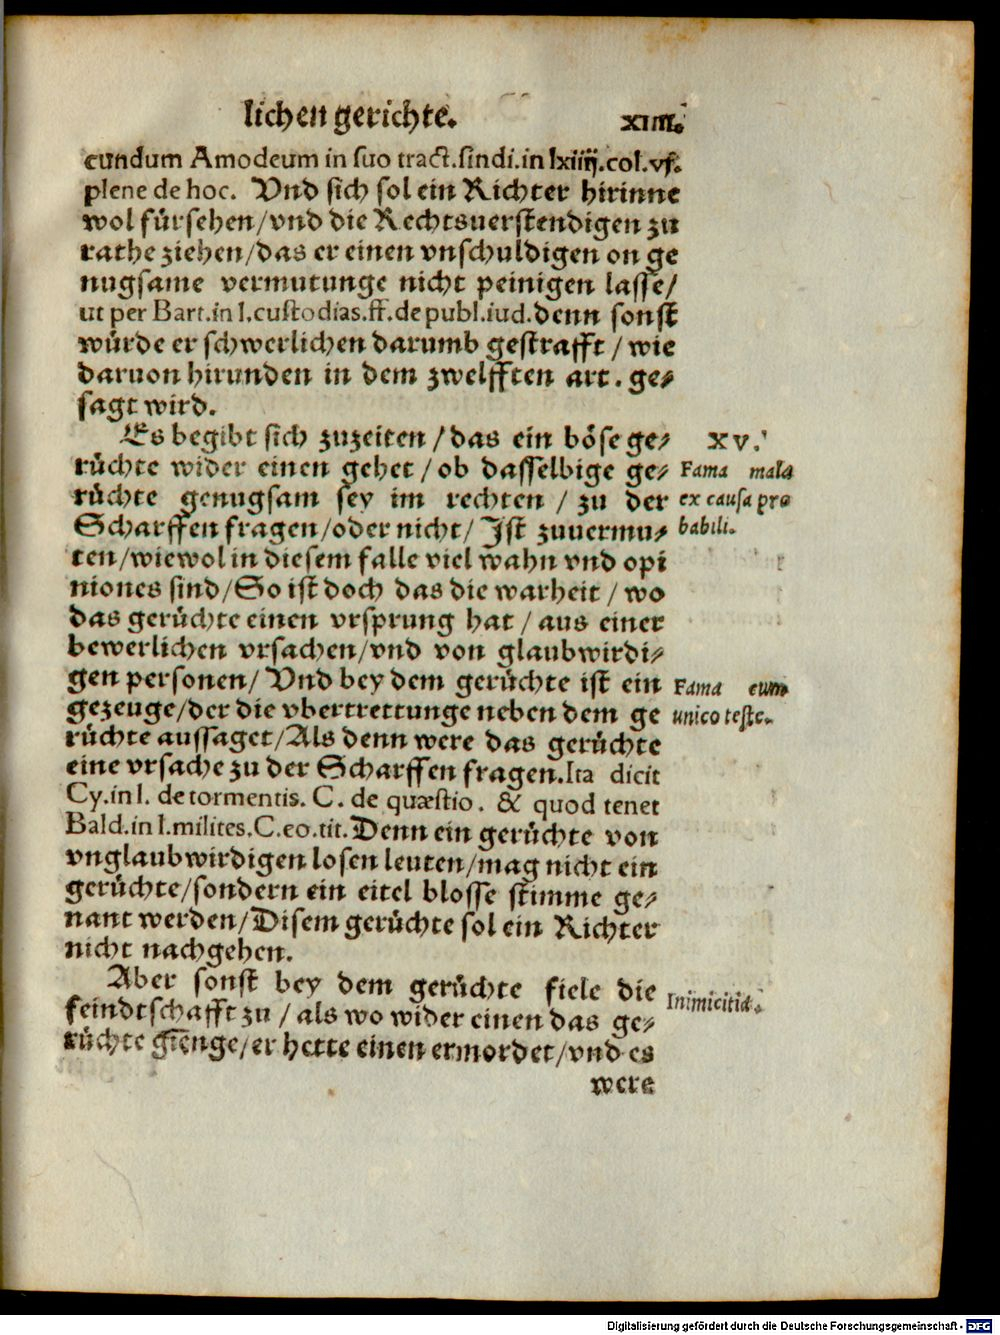 lichen gerichte. XIIII.
cundum Amodeum in suo tract. sindi. in lxiiij. col. vf.
plene de hoc. Vnd sich sol ein Richter hirinne
wol fürsehen/vnd die Rechtsuerstendigen zu
rathe ziehen/das er einen vnschuldigen on ge
nugsame vermutunge nicht peinigen lasse/
ut per Bart. in l. custodias. ff. de publ. iud. denn sonst
würde er schwerlichen darumb gestrafft / wie
daruon hirunden in dem zwelfften art. ge⸗
sagt wird.
Es begibt sich zuzeiten / das ein böse ge⸗ XV.
rüchte wider einen gehet / ob dasselbige ge⸗ Fama mala
rüchte genugsam sey im rechten / zu der ex causa pro
Scharffen fragen/oder nicht/ Jst zuuermu⸗ babili.
ten/wiewol in diesem falle viel wahn vnd opi
niones sind/So ist doch das die warheit / wo
das gerüchte einen vrsprung hat / aus einer
bewerlichen vrsachen/vnd von glaubwirdi⸗
gen personen/ Vnd bey dem gerüchte ist ein Fama cum
gezeuge/der die vbertrettunge neben dem ge unico teste.
rüchte aussaget/Als denn were das gerüchte
eine vrsache zu der Scharffen fragen. Ita dicit
Cy. in l. de tormentis. C. de quæstio. & quod tenet
Bald. in l. milites. C. eo. tit. Denn ein gerüchte von
vnglaubwirdigen losen leuten/mag nicht ein
gerüchte/sondern ein eitel blosse stimme ge⸗
nant werden/Disem gerüchte sol ein Richter
nicht nachgehen.
Aber sonst bey dem gerüchte fiele die Inimicitiæ.
feindtschafft zu / als wo wider einen das ge⸗
rüchte gienge/er hette einen ermordet/vnd es
were
Digitalisierung gefördert durch die Deutsche Forschungsgemeinschaft - DFG